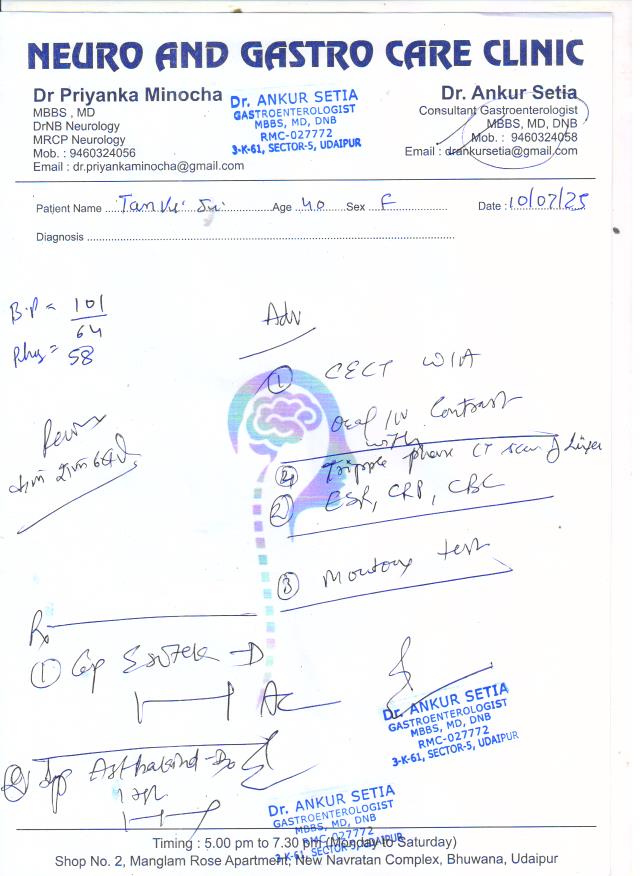 NEURO AND GASTRO CARE CLINIC
Dr Priyanka Minocha
MBBS , MD
DrNB Neurology
MRCP Neurology
Mob. : 9460324056
Email : dr.priyankaminocha@gmail.com
Dr. ANKUR SETIA
GASTROENTEROLOGIST
MBBS, MD, DNB
RMC-027772
3-K-61, SECTOR-5, UDAIPUR
Dr. Ankur Setia
Consultant Gastroenterologist
MBBS, MD, DNB
Mob. : 9460324058
Email : drankursetia@gmail.com
Patient Name Age 40 Sex F Date : 10/07/25
Diagnosis
B.P = 101/64
58
Adv
① CECT W/A
oral / IV Contrast
with
Tripple phase CT scan of Liver
② ESR, CRP, CBC
③ Montoux test
Rx
① Cap -D
AC
Dr. ANKUR SETIA
GASTROENTEROLOGIST
MBBS, MD, DNB
RMC-027772
3-K-61, SECTOR-5, UDAIPUR
Dr. ANKUR SETIA
GASTROENTEROLOGIST
MBBS, MD, DNB
RMC-027772
3-K-61, SECTOR-5, UDAIPUR
Timing : 5.00 pm to 7.30 pm (Monday to Saturday)
Shop No. 2, Manglam Rose Apartment, New Navratan Complex, Bhuwana, Udaipur